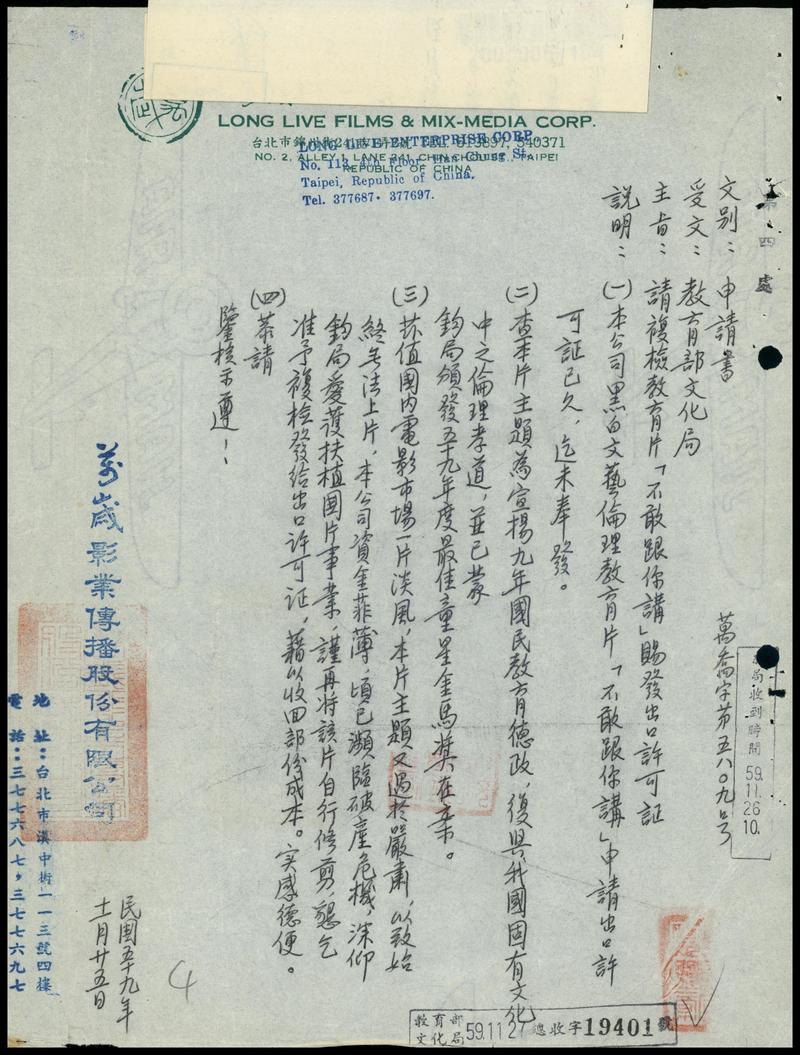 萬歲
LONG LIVE FILMS & MIX-MEDIA CORP.
台北市錦州街241巷 540371
LONG LIVE ENTERPRISE CORP.
NO. 2, ALLEY 1, LANE 241, CHIN CHOU ST., TAIPEI
REPUBLIC OF CHINA
No. 113, 4th Floor Han Chung St.
Taipei, Republic of China.
Tel. 377687. 377697.
第四處
文別：申請書
萬喬字第五八〇九号
受文：教育部文化局
主旨：請複檢教育片「不敢跟你講」賜發出口許可証
說明：
(一)本公司黑白文藝倫理教育片「不敢跟你講」申請出口許
可証已久，迄未奉發。
(二)查本片主題為宣揚九年國民教育德政，復興我國固有文化
中之倫理孝道，並已蒙
鈞局頒發五十九年度最佳童星金馬獎在案。
(三)茲值國內電影市場一片淡風，本片主題又過於嚴肅，以致始
終無法上片，本公司資金菲薄，頃已瀕臨破產危機，深仰
鈞局愛護扶植國片事業，謹再將該片自行修剪，懇乞
准予複檢發給出口許可证，藉以收回部份成本。実感德便。
(四)恭請
鑒核示遵！
萬歲影業傳播股份有限公司
地址：台北市漢中街一一三號四樓
電話：三七七六八七，三七七六九七
民國五十九年
十一月廿五日
局收到時間
59.11.26
10.
4
教育部
文化局
59.11.27
總收字19401號